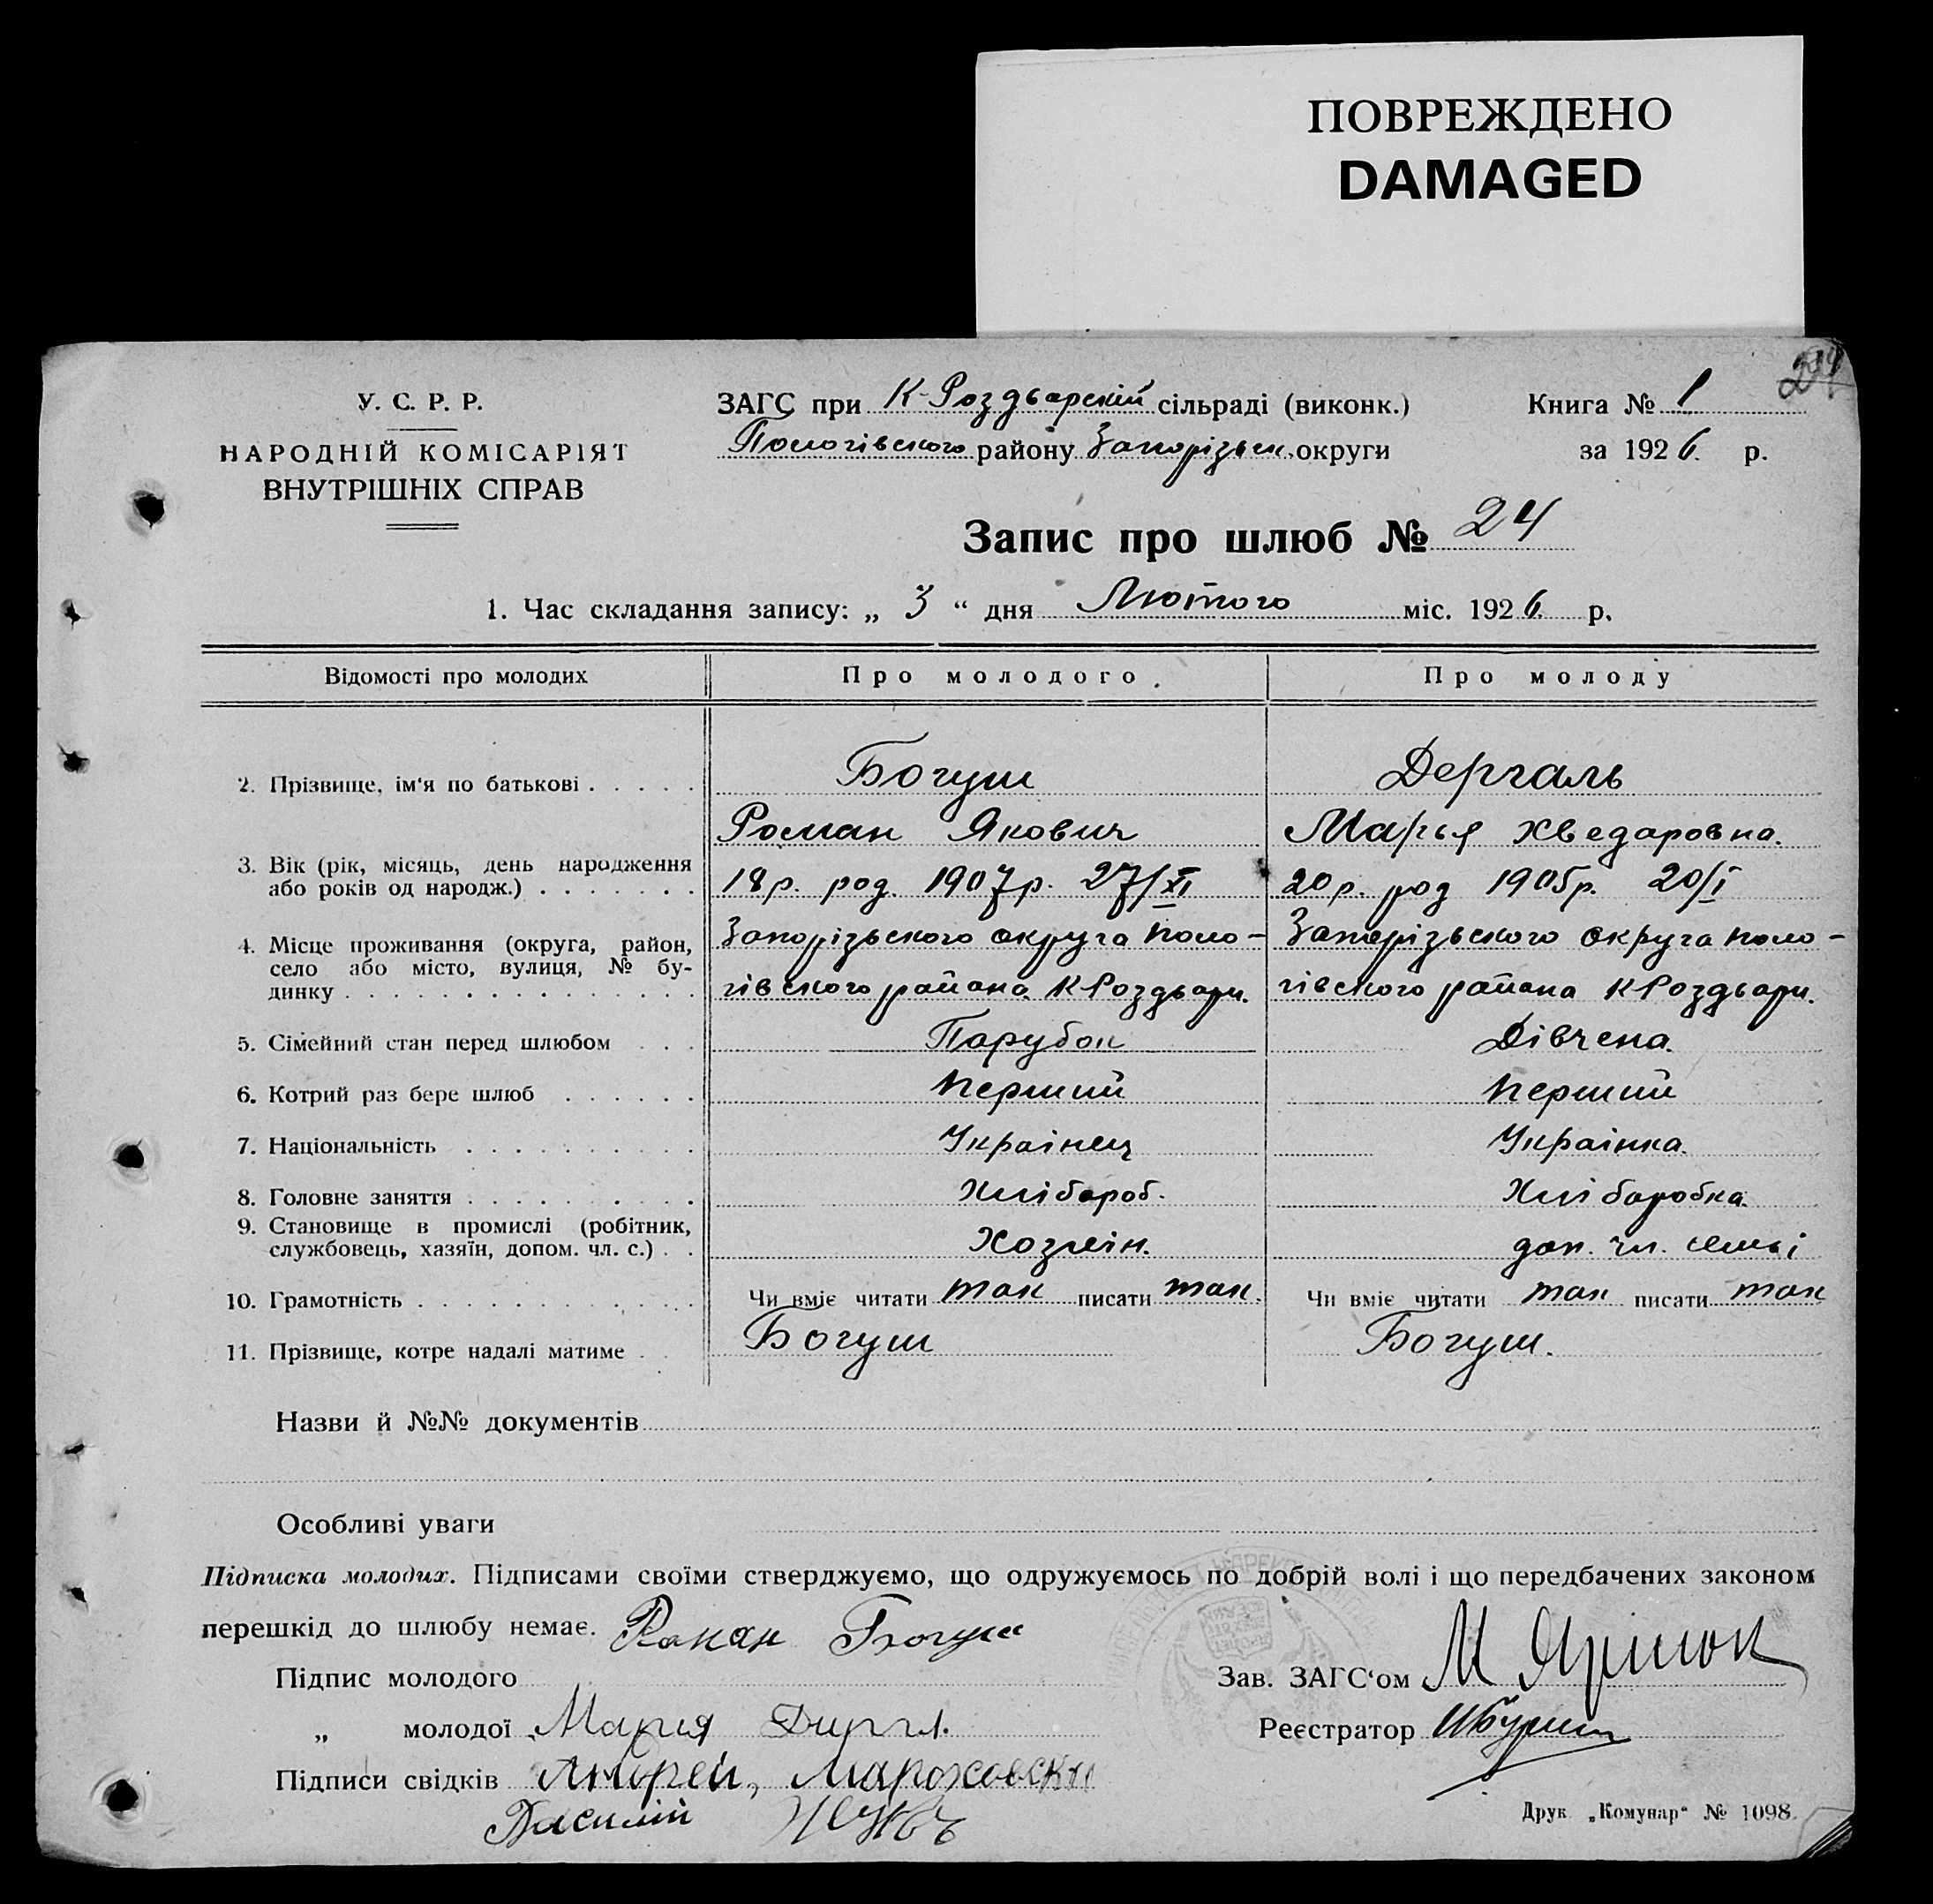 ПОВРЕЖДЕНО
DAMAGED
У. С. Р. Р.
НАРОДНІЙ КОМІСАРІЯТ
ВНУТРІШНІХ СПРАВ
ЗАГС при К-Роздьарскій сільраді (виконк.)
Пологівского району Запорізьк. округи
Книга № 1
за 1926. р.
Запис про шлюб № 24
1. Час складання запису: „ 3 “ дня Лютого міс. 1926. р.
Відомості про молодих
Про молодого.
Про молоду
2. Прізвище, ім'я по батькові . . . . .
Богуш
Роман Якович
Дергаль
Марья Хведаровна.
3. Вік (рік, місяць, день народження
або років од народж.) . . . . . . .
18р. род. 1907р. 27/XI
20р. род 1905р. 20/I
4. Місце проживання (округа, район,
село або місто, вулиця, № бу-
динку . . . . . . . . . . . . . . .
Запорізьского округа Поло-
гівского района К Роздьари.
Запорізьского округа Поло-
гівского района К Роздьари.
5. Сімейний стан перед шлюбом . . .
Парубок
Дівчена.
6. Котрий раз бере шлюб . . . . . .
Перший
Перший
7. Національність . . . . . . . . . .
Украінец
Украінка.
8. Головне заняття . . . . . . . . . .
Хлібороб.
Хліборобка.
9. Становище в промислі (робітник,
службовець, хазяїн, допом. чл. с.) . .
Хозяін.
доп. чл. семьі
10. Грамотність . . . . . . . . . . . .
Чи вміє читати так писати так.
Чи вміє читати так писати так
11. Прізвище, котре надалі матиме . .
Богуш
Богуш.
Назви й №№ документів
Особливі уваги
Підписка молодих. Підписами своїми стверджуємо, що одружуємось по добрій волі і що передбачених законом
перешкід до шлюбу немає.
Роман Богуш
Підпис молодого
„ молодої Мария
Підписи свідків Андрей,
Василій
Зав. ЗАГС'ом М
Реєстратор
Друк „Комунар“ № 1098.